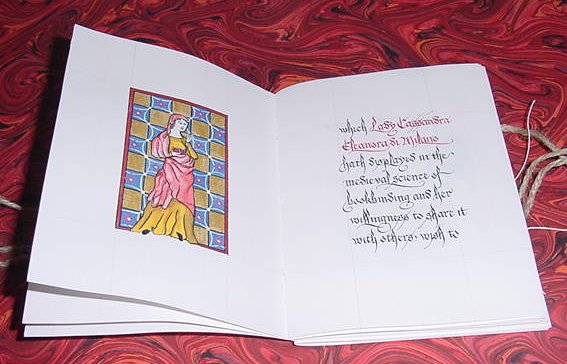 which Lady Cassandra
Eleanora di Milano
hath displayed in the
medieval science of
bookbinding and her
willingness to share it
with others, wish to